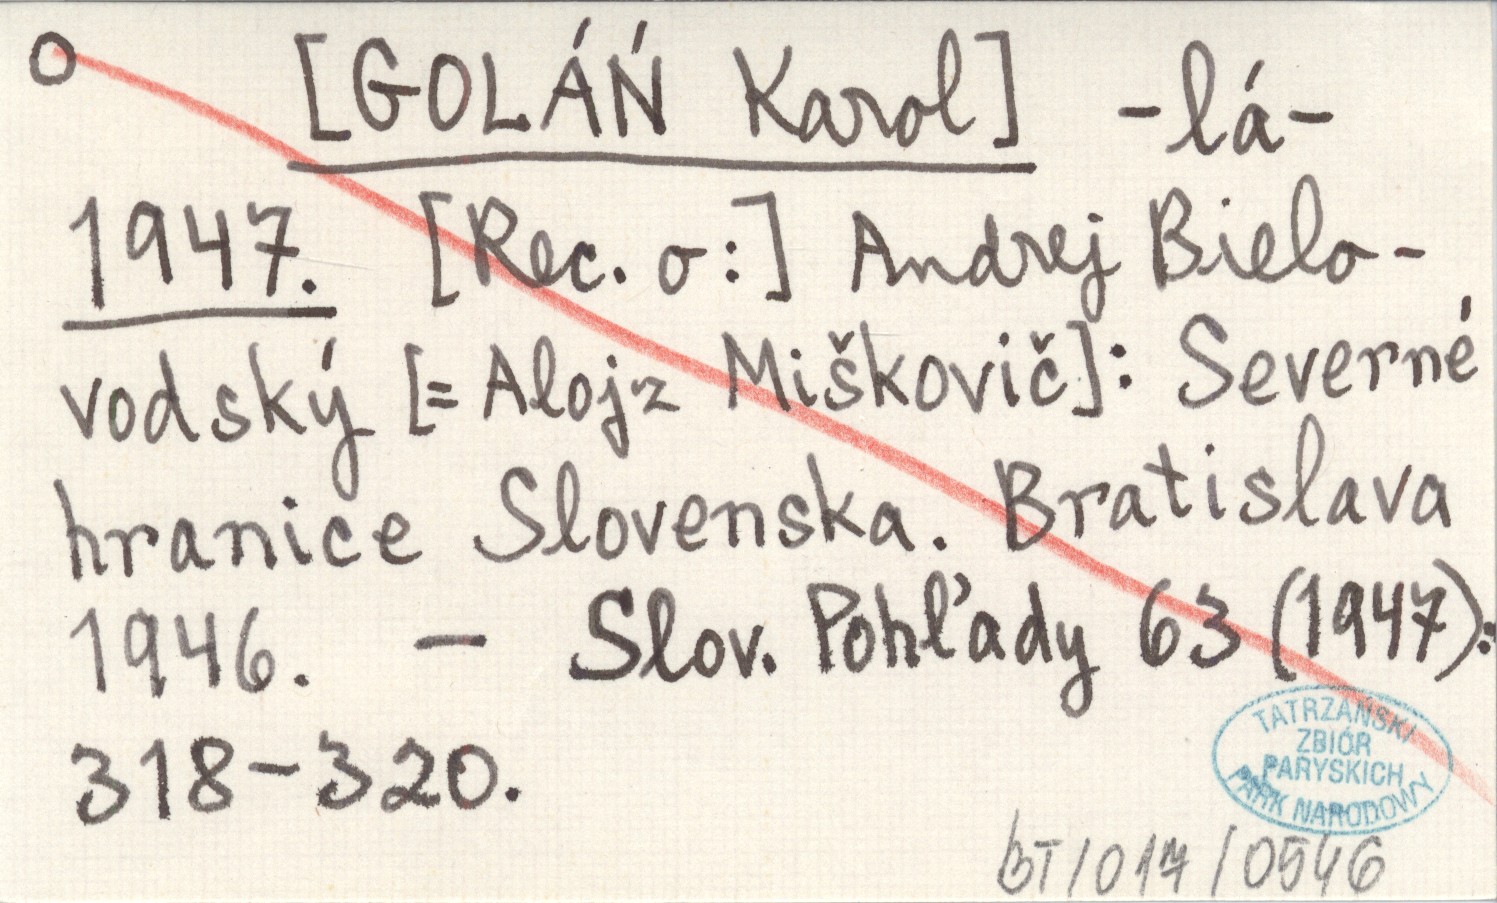 O [GOLÁŃ Karol] -lá-
1947. [Rec. o:] Andrej Bielo-
vodský [= Alojz Miškovič]: Severné
hranice Slovenska. Bratislava
1946. — Slov. Pohľady 63 (1947):
318-320.
TATRZAŃSKI
ZBIÓR
PARYSKICH
PARK NARODOWY
BT/017/0546